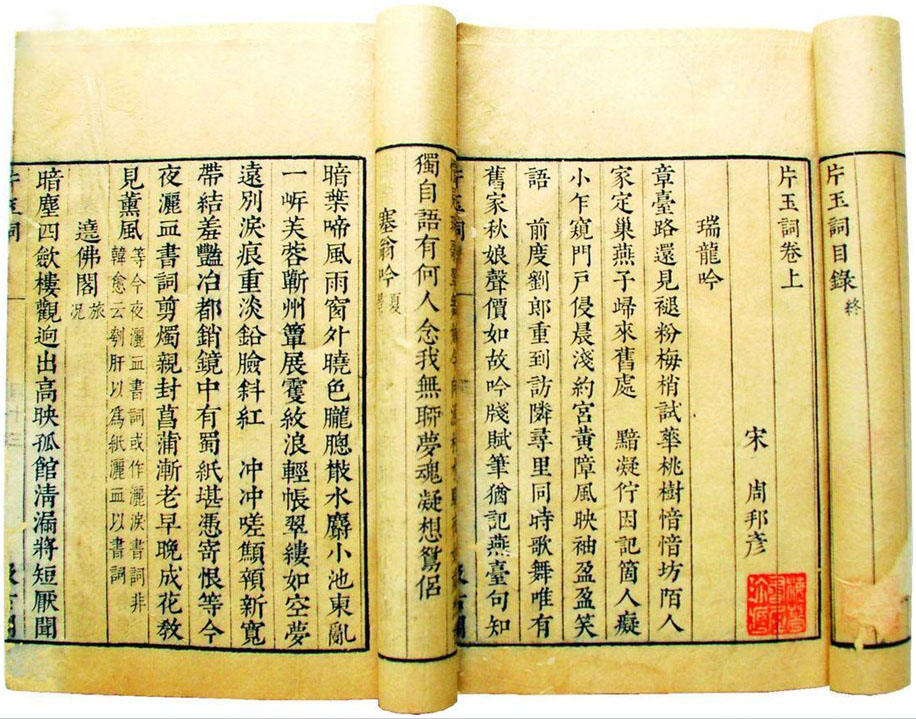 片玉詞目錄終
片玉詞卷上
宋 周邦彥
瑞龍吟
章臺路還見褪粉梅梢試華桃樹愔愔坊陌人
家定巢燕子歸來舊處 黯凝佇因記箇人癡
小乍窺門戶侵晨淺約宮黃障風映袖盈盈笑
語 前度劉郎重到訪隣尋里同時歌舞唯有
舊家秋娘聲價如故吟牋賦筆猶記燕臺句知
片玉詞
獨自語有何人念我無聊夢魂凝想鴛侶
塞翁吟 夏景
暗葉啼風雨窗外曉色朧朧散水麝小池東亂
一岍芙蓉蘄州簟展雙紋浪輕帳翠縷如空夢
遠別淚痕重淡鉛臉斜紅 冲冲嗟顦顇新寬
帶結羞豔冶都銷鏡中有蜀紙堪憑寄恨等今
夜灑血書詞剪燭親封菖蒲漸老早晚成花敎
見薰風 等今夜灑血書詞或作灑淚書詞非
韓愈云刳肝以爲紙灑血以書詞
遶佛閣 旅况
暗塵四歛樓觀逈出高映孤館清漏將短厭聞
片玉詞